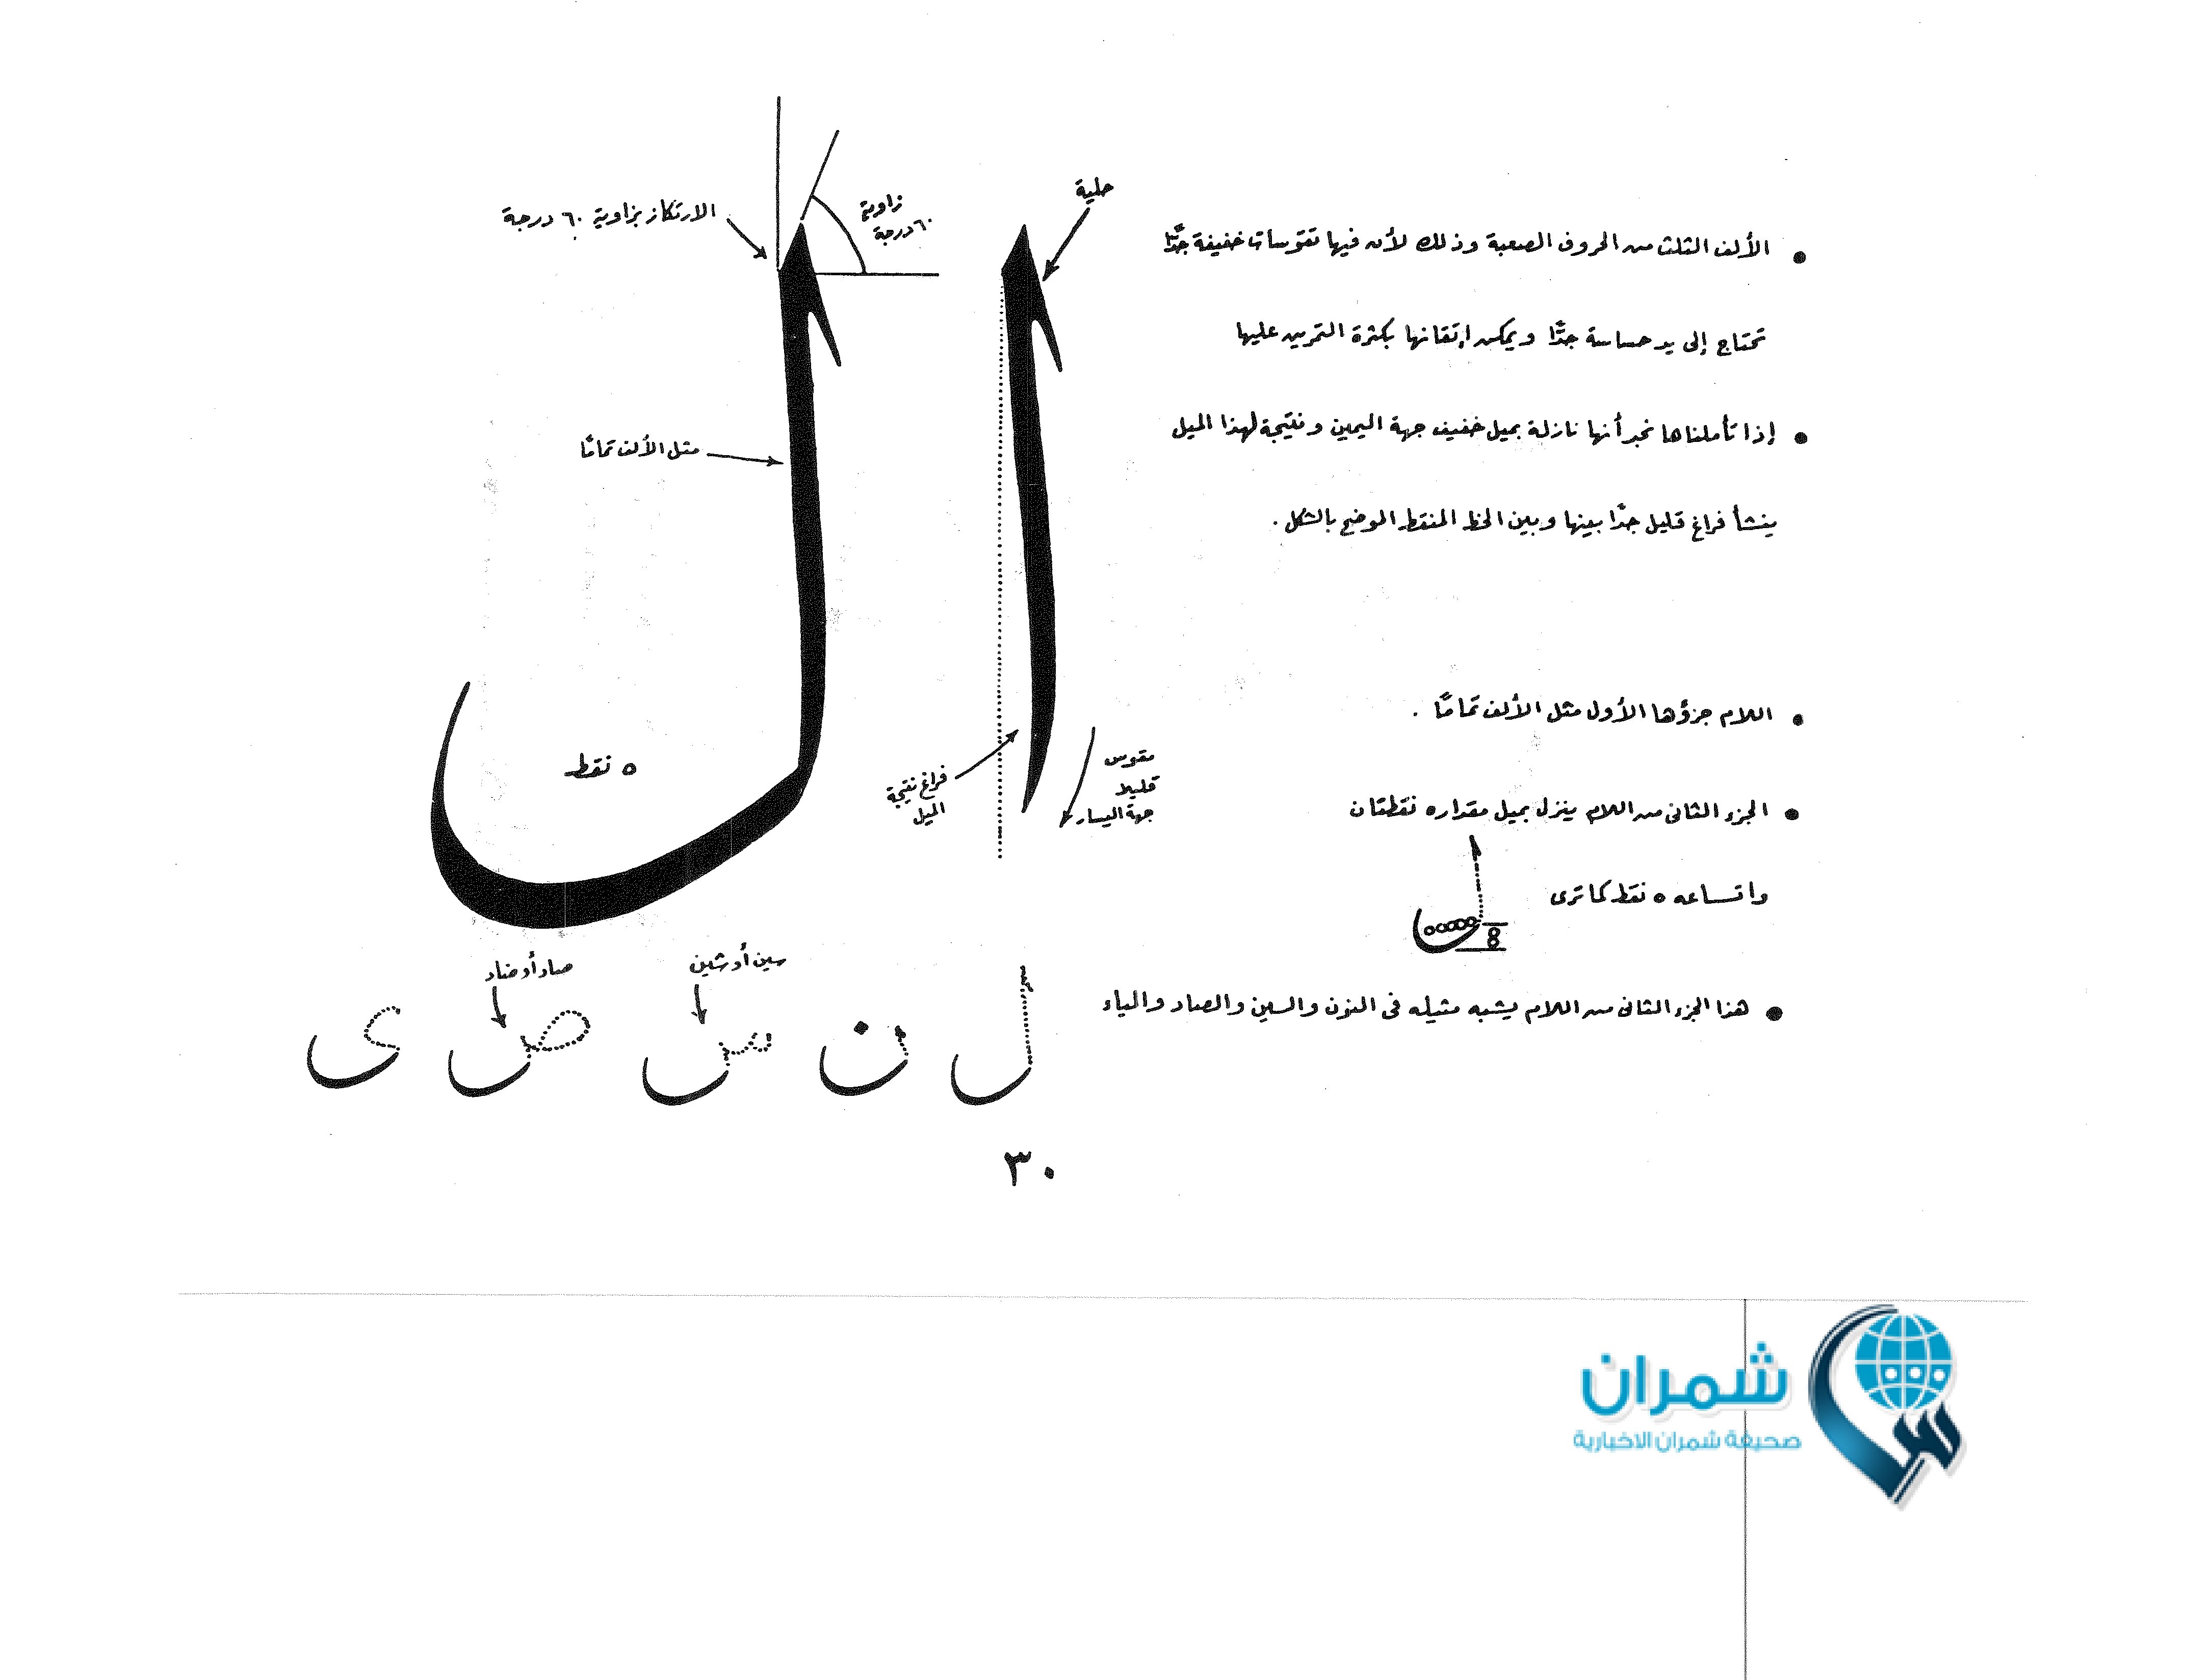 حلية
زاوية
٦٠ درجة
الارتكاز بزاوية ٦٠ درجة
• الألف الثلث من الحروف الصعبة وذلك لأن فيها تقوسات خفيفة جدًّا
تحتاج إلى يد حساسة جدًّا ويمكن إتقانها بكثرة التمرين عليها
• إذا تأملناها نجد أنها نازلة بميل خفيف جهة اليمين ونتيجة لهذا الميل
مثل الألف تمامًا
ينشأ فراغ قليل جدًّا بينها وبين الخط المنقط الموضح بالشكل .
• اللام جزؤها الأول مثل الألف تمامًا .
مقوس
قليلا
جهة اليسار
فراغ نتيجة
الميل
٥ نقط
• الجزء الثانى من اللام ينزل بميل مقداره نقطتان
واتساعه ٥ نقط كما ترى
• هذا الجزء الثانى من اللام يشبه مثيله فى النون والسين والصاد والياء
سين أو شين
صاد أو ضاد
ل ن س ص ى
٣٠
شمران
صحيفة شمران الاخبارية